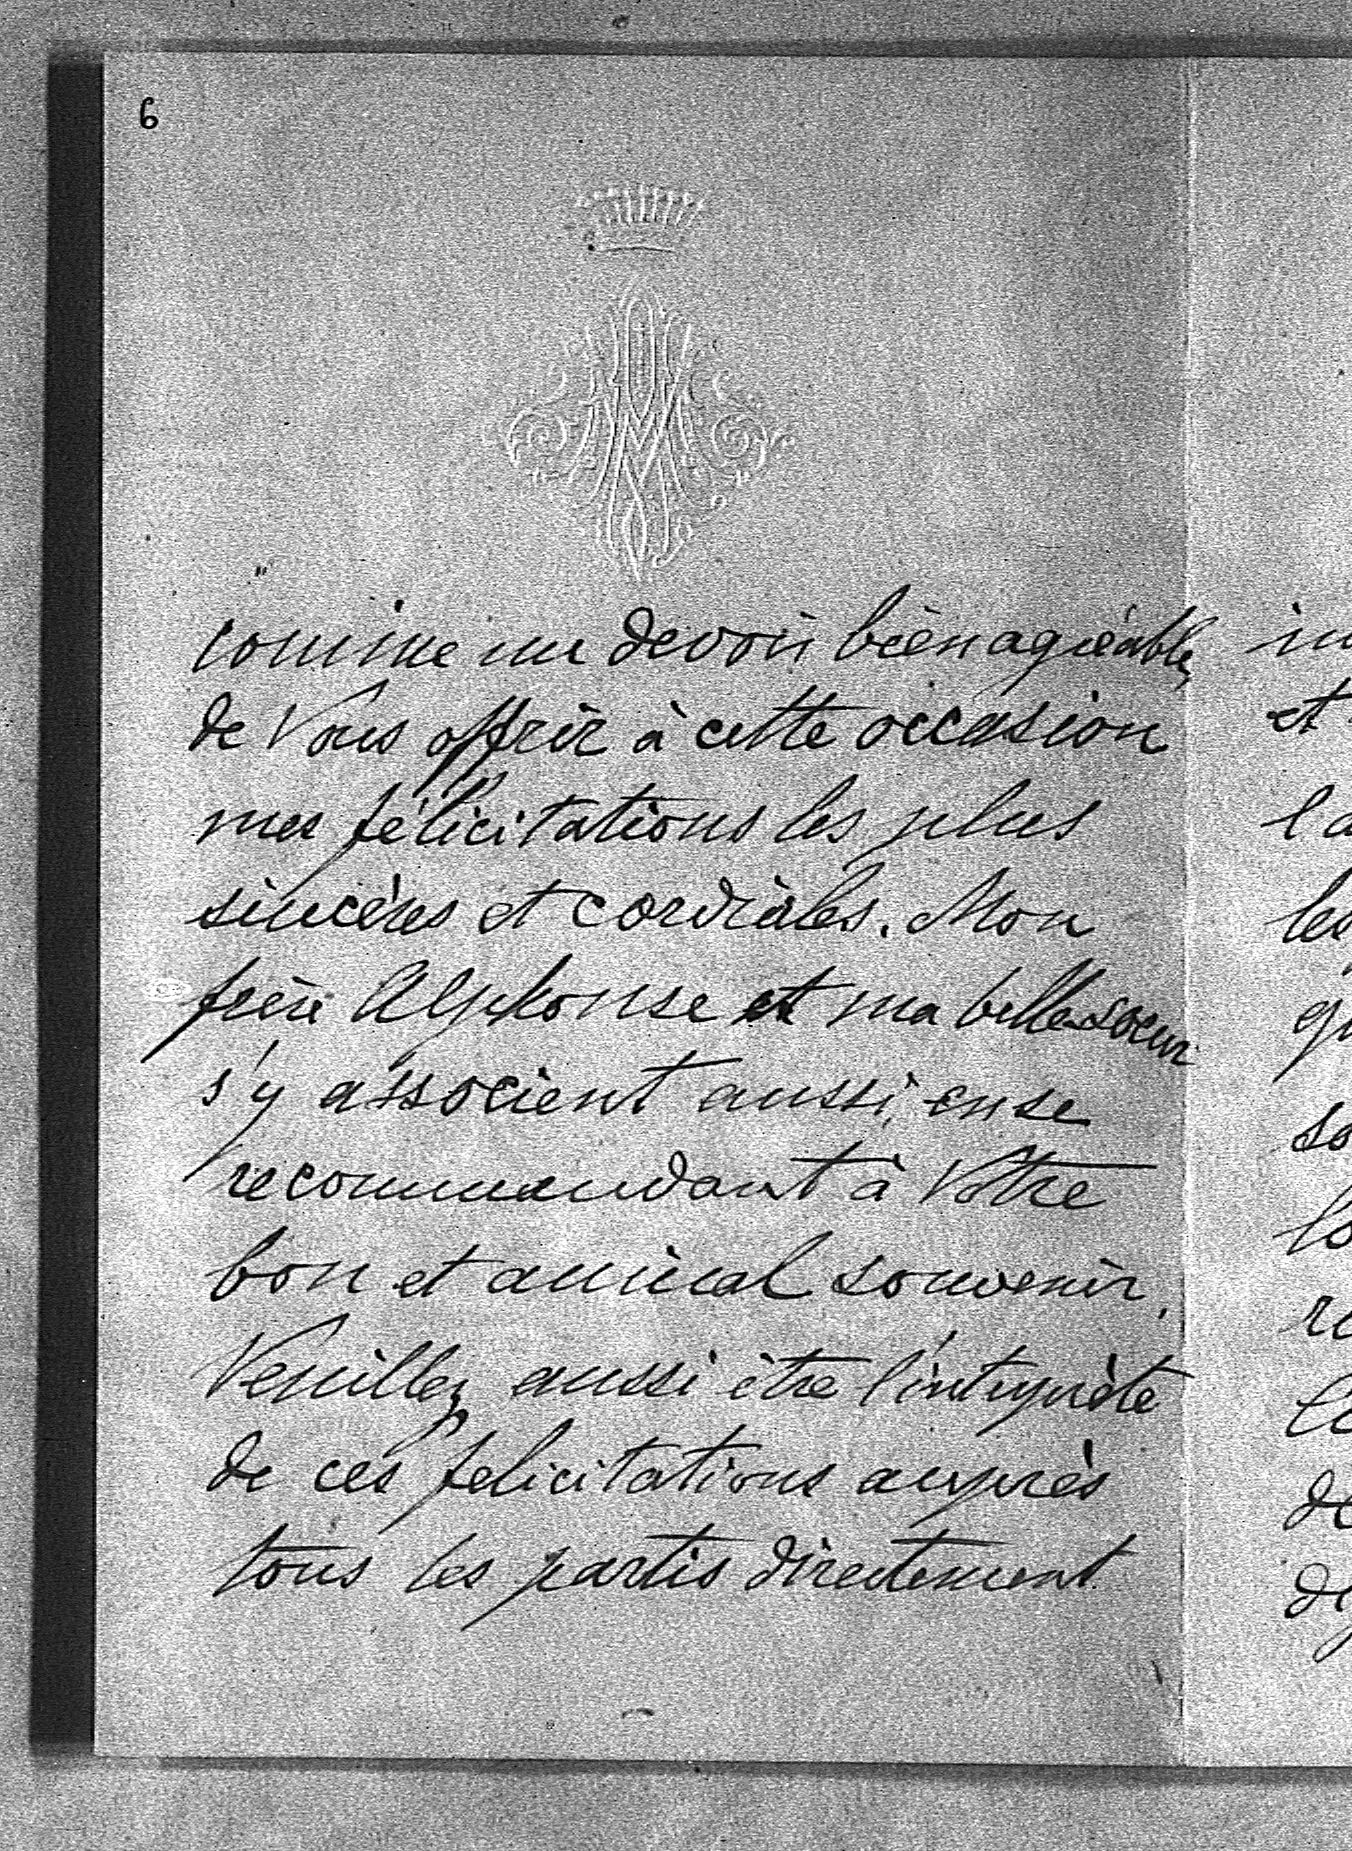 6
comme un devoir bien agréable
de Vous offrir à cette occasion
mes félicitations les plus
sincères et cordiales. Mon
frère Alphonse et ma belle soeur
s'y associent aussi, en se
recommandant à Votre
bon et amical souvenir.
Veuillez aussi être l'intreprète
de ces felicitations auprès
tous les partis directement
et
la
les
de